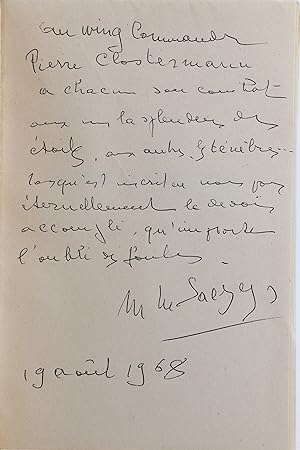 au Wing Commander
Pierre Clostermann
a chacun son combat
aux uns la splendeur des
étoiles, aux autres, les ténèbres...
lorsqu'est inscrit en nous pour
éternellement le devoir
accompli, qu'importe
l'oubli des foules.
M
19 août 1968